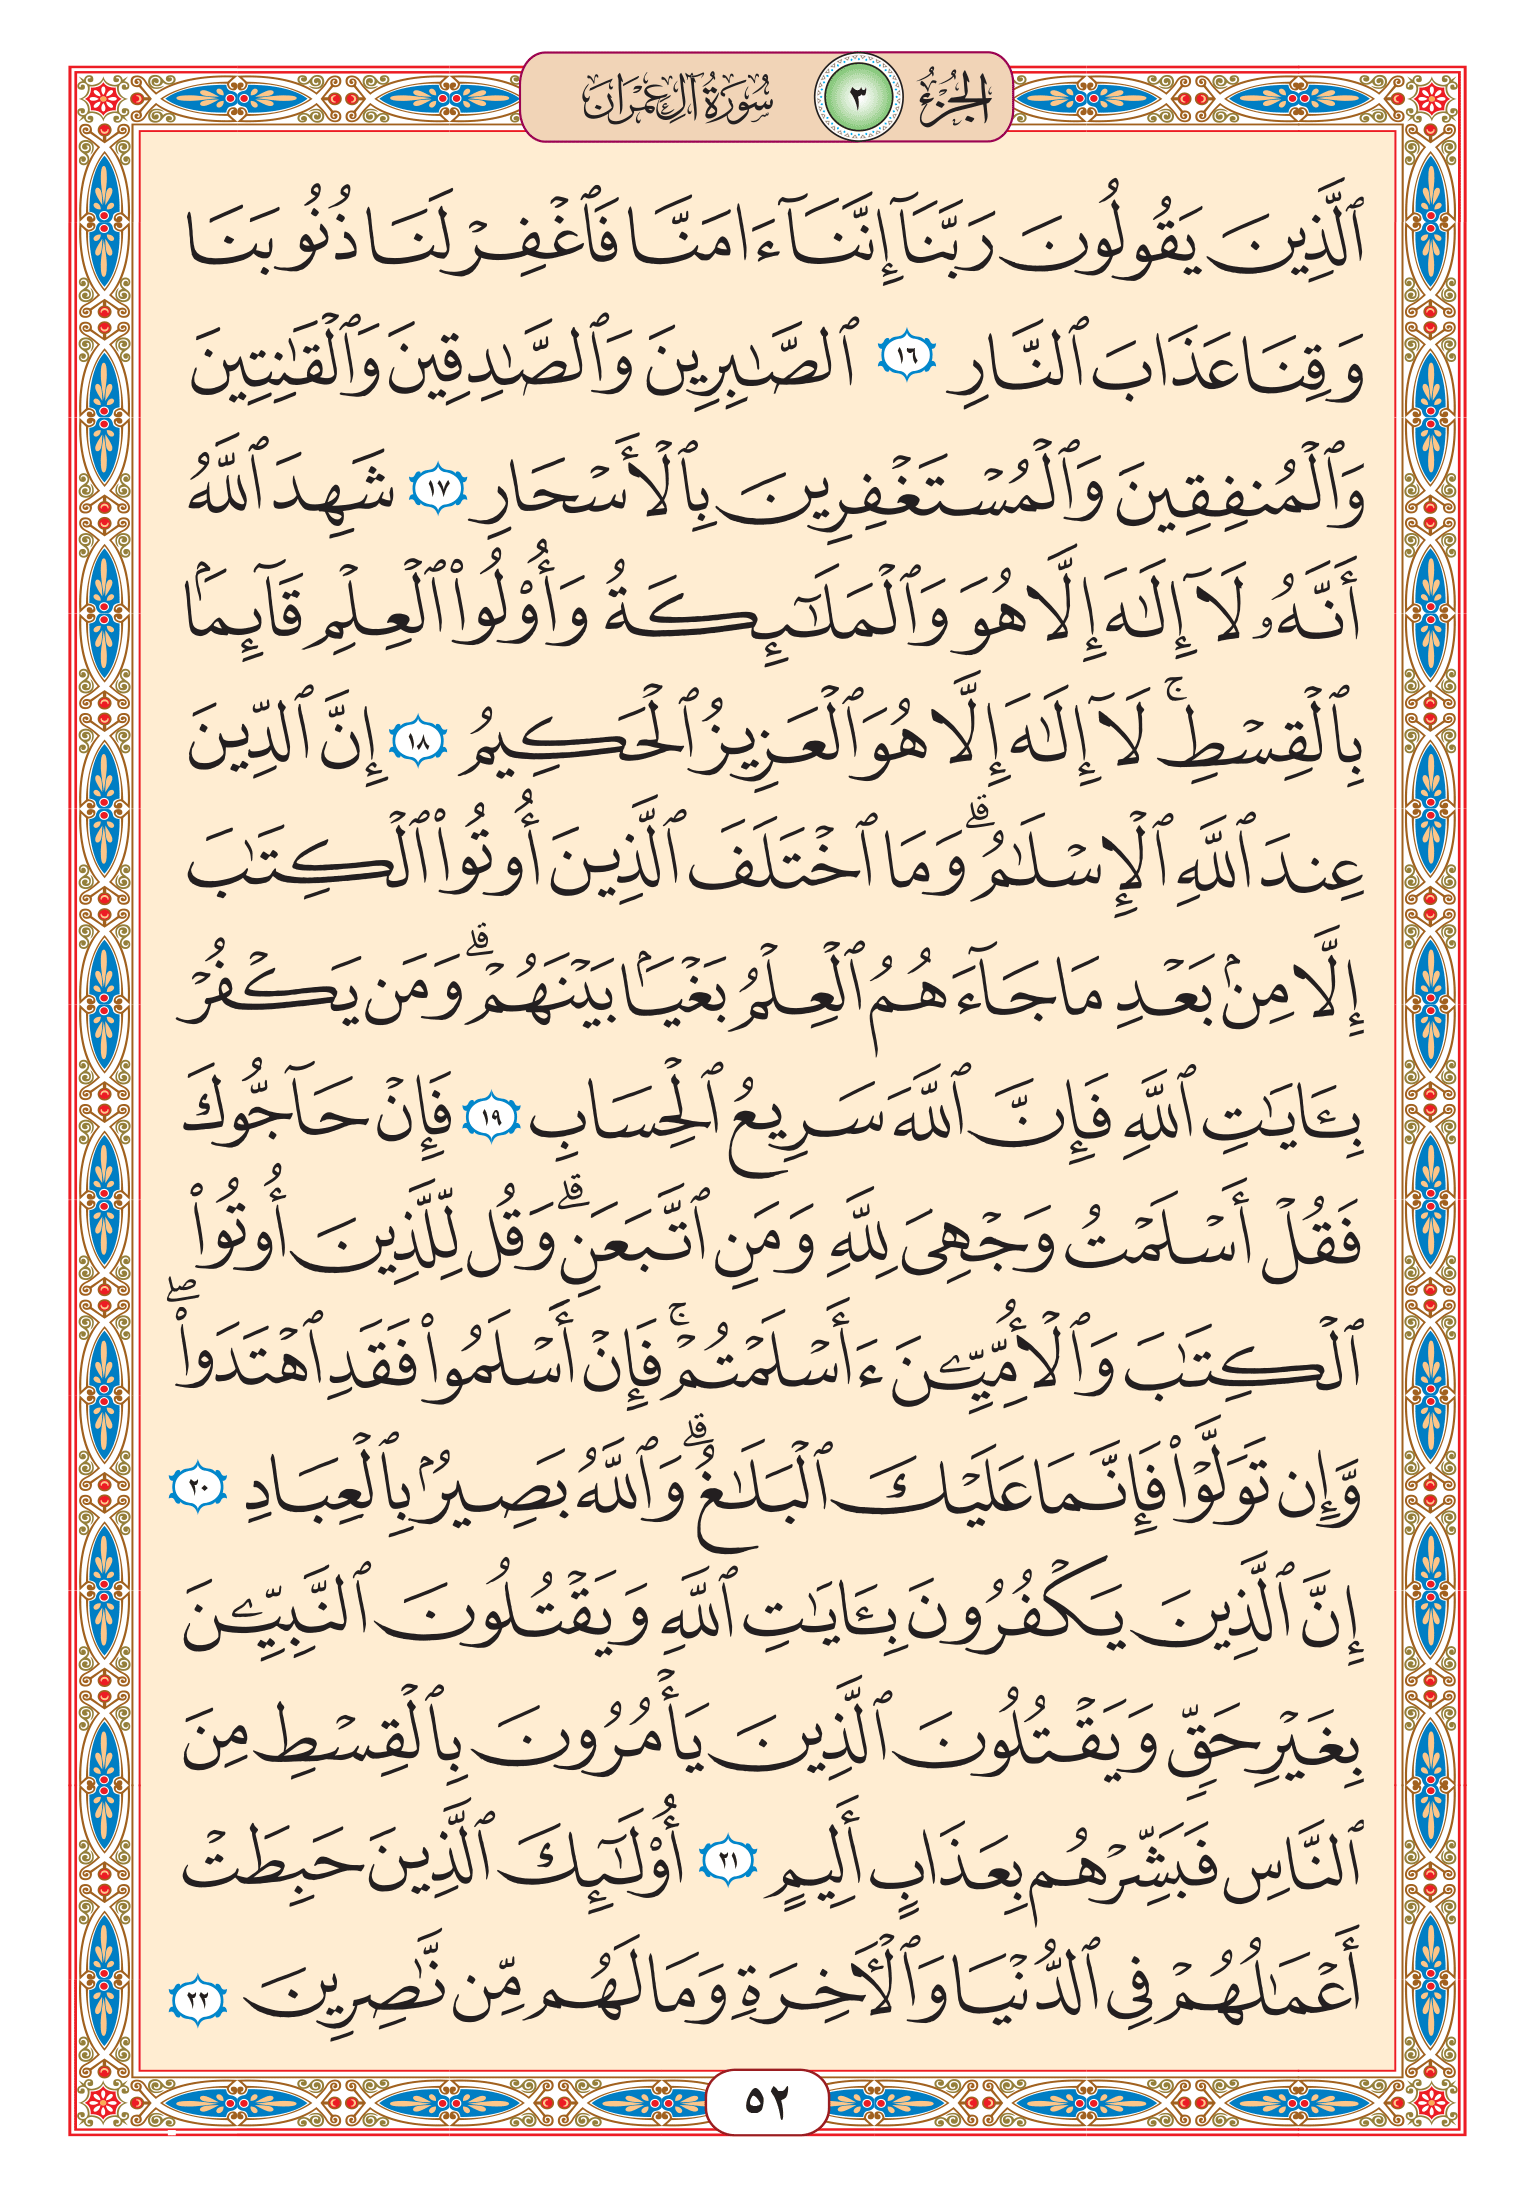 الجزء ٣ سورة آل عمران
ٱلَّذِينَ يَقُولُونَ رَبَّنَآ إِنَّنَآ ءَامَنَّا فَٱغۡفِرۡ لَنَا ذُنُوبَنَا
وَقِنَا عَذَابَ ٱلنَّارِ ١٦ ٱلصَّٰبِرِينَ وَٱلصَّٰدِقِينَ وَٱلۡقَٰنِتِينَ
وَٱلۡمُنفِقِينَ وَٱلۡمُسۡتَغۡفِرِينَ بِٱلۡأَسۡحَارِ ١٧ شَهِدَ ٱللَّهُ
أَنَّهُۥ لَآ إِلَٰهَ إِلَّا هُوَ وَٱلۡمَلَٰٓئِكَةُ وَأُوْلُواْ ٱلۡعِلۡمِ قَآئِمَۢا
بِٱلۡقِسۡطِۚ لَآ إِلَٰهَ إِلَّا هُوَ ٱلۡعَزِيزُ ٱلۡحَكِيمُ ١٨ إِنَّ ٱلدِّينَ
عِندَ ٱللَّهِ ٱلۡإِسۡلَٰمُۗ وَمَا ٱخۡتَلَفَ ٱلَّذِينَ أُوتُواْ ٱلۡكِتَٰبَ
إِلَّا مِنۢ بَعۡدِ مَا جَآءَهُمُ ٱلۡعِلۡمُ بَغۡيَۢا بَيۡنَهُمۡۗ وَمَن يَكۡفُرۡ
بِـَٔايَٰتِ ٱللَّهِ فَإِنَّ ٱللَّهَ سَرِيعُ ٱلۡحِسَابِ ١٩ فَإِنۡ حَآجُّوكَ
فَقُلۡ أَسۡلَمۡتُ وَجۡهِيَ لِلَّهِ وَمَنِ ٱتَّبَعَنِۗ وَقُل لِّلَّذِينَ أُوتُواْ
ٱلۡكِتَٰبَ وَٱلۡأُمِّيِّـۧنَ ءَأَسۡلَمۡتُمۡۚ فَإِنۡ أَسۡلَمُواْ فَقَدِ ٱهۡتَدَواْۖ
وَّإِن تَوَلَّوۡاْ فَإِنَّمَا عَلَيۡكَ ٱلۡبَلَٰغُۗ وَٱللَّهُ بَصِيرُۢ بِٱلۡعِبَادِ ٢٠
إِنَّ ٱلَّذِينَ يَكۡفُرُونَ بِـَٔايَٰتِ ٱللَّهِ وَيَقۡتُلُونَ ٱلنَّبِيِّـۧنَ
بِغَيۡرِ حَقّٖ وَيَقۡتُلُونَ ٱلَّذِينَ يَأۡمُرُونَ بِٱلۡقِسۡطِ مِنَ
ٱلنَّاسِ فَبَشِّرۡهُم بِعَذَابٍ أَلِيمٍ ٢١ أُوْلَٰٓئِكَ ٱلَّذِينَ حَبِطَتۡ
أَعۡمَٰلُهُمۡ فِي ٱلدُّنۡيَا وَٱلۡأٓخِرَةِ وَمَا لَهُم مِّن نَّٰصِرِينَ ٢٢
٥٢